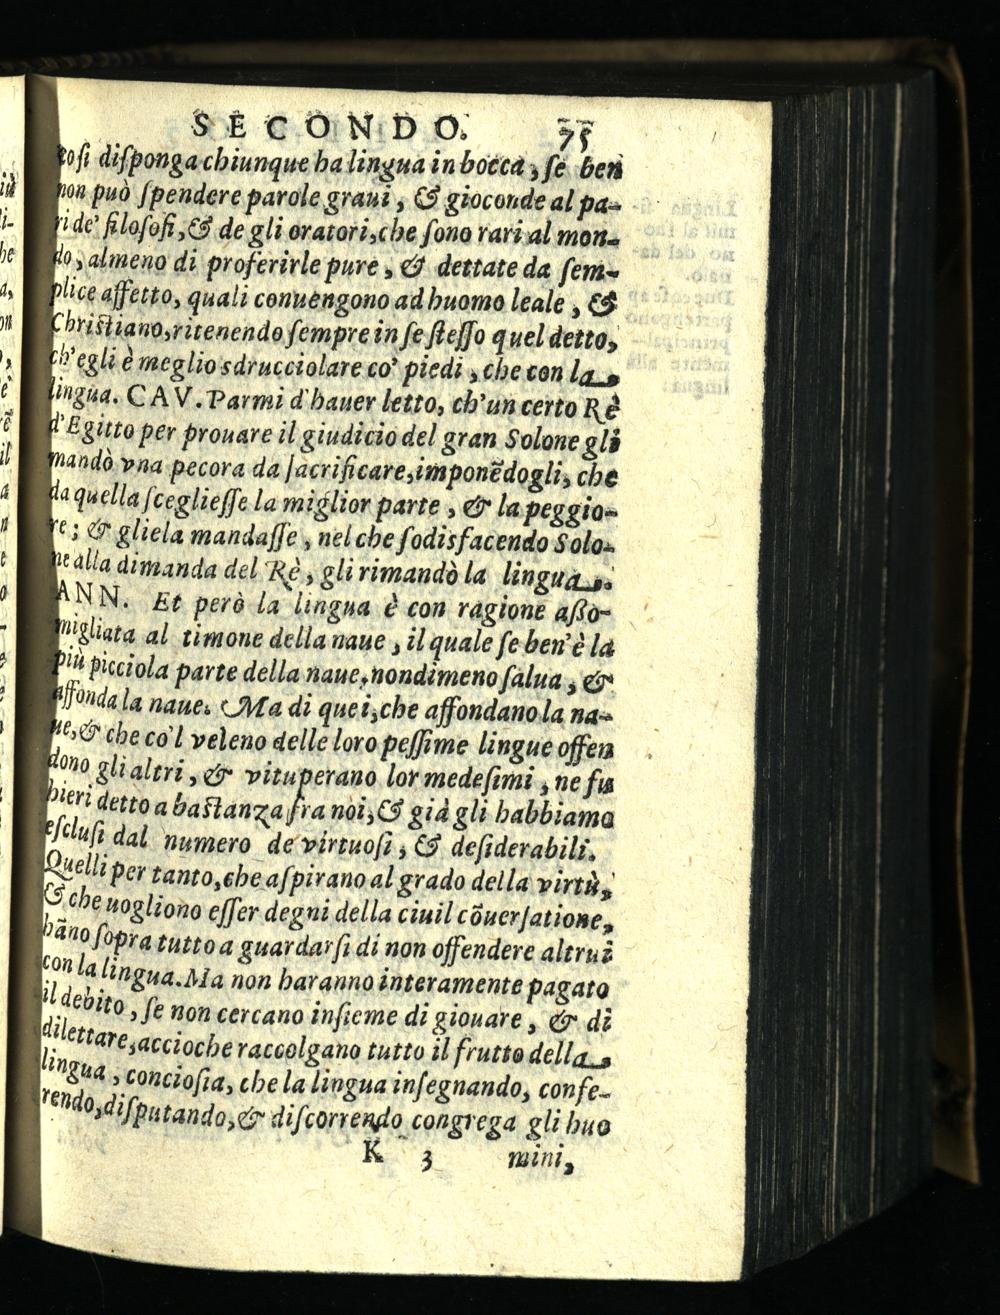 SECONDO. 75
cosi disponga chiunque ha lingua in bocca, se ben
non può spendere parole graui, & gioconde al pa-
ri de' filosofi, & de gli oratori, che sono rari al mon-
do, almeno di proferirle pure, & dettate da sem-
plice affetto, quali conuengono ad huomo leale, &
Christiano, ritenendo sempre in se stesso quel detto,
ch'egli è meglio sdrucciolare co' piedi, che con la
lingua. CAV. Parmi d'hauer letto, ch'un certo Rè
d'Egitto per prouare il giudicio del gran Solone gli
mandò vna pecora da sacrificare, imponẽdogli, che
da quella scegliesse la miglior parte, & la peggio-
re; & gliela mandasse, nel che sodisfacendo Solo-
ne alla dimanda del Rè, gli rimandò la lingua.
ANN. Et però la lingua è con ragione aßo-
migliata al timone della naue, il quale se ben'è la
più picciola parte della naue, nondimeno salua, &
affonda la naue. Ma di quei, che affondano la na-
ue, & che co'l veleno delle loro pessime lingue offen
dono gli altri, & vituperano lor medesimi, ne fu
hieri detto a bastanza fra noi, & già gli habbiamo
esclusi dal numero de virtuosi, & desiderabili.
Quelli per tanto, che aspirano al grado della virtù,
& che uogliono esser degni della ciuil cõuersatione,
hãno sopra tutto a guardarsi di non offendere altrui
con la lingua. Ma non haranno interamente pagato
il debito, se non cercano insieme di giouare, & di
dilettare, accioche raccolgano tutto il frutto della
lingua, conciosia, che la lingua insegnando, confe-
rendo, disputando, & discorrendo congrega gli huo
K 3 mini,